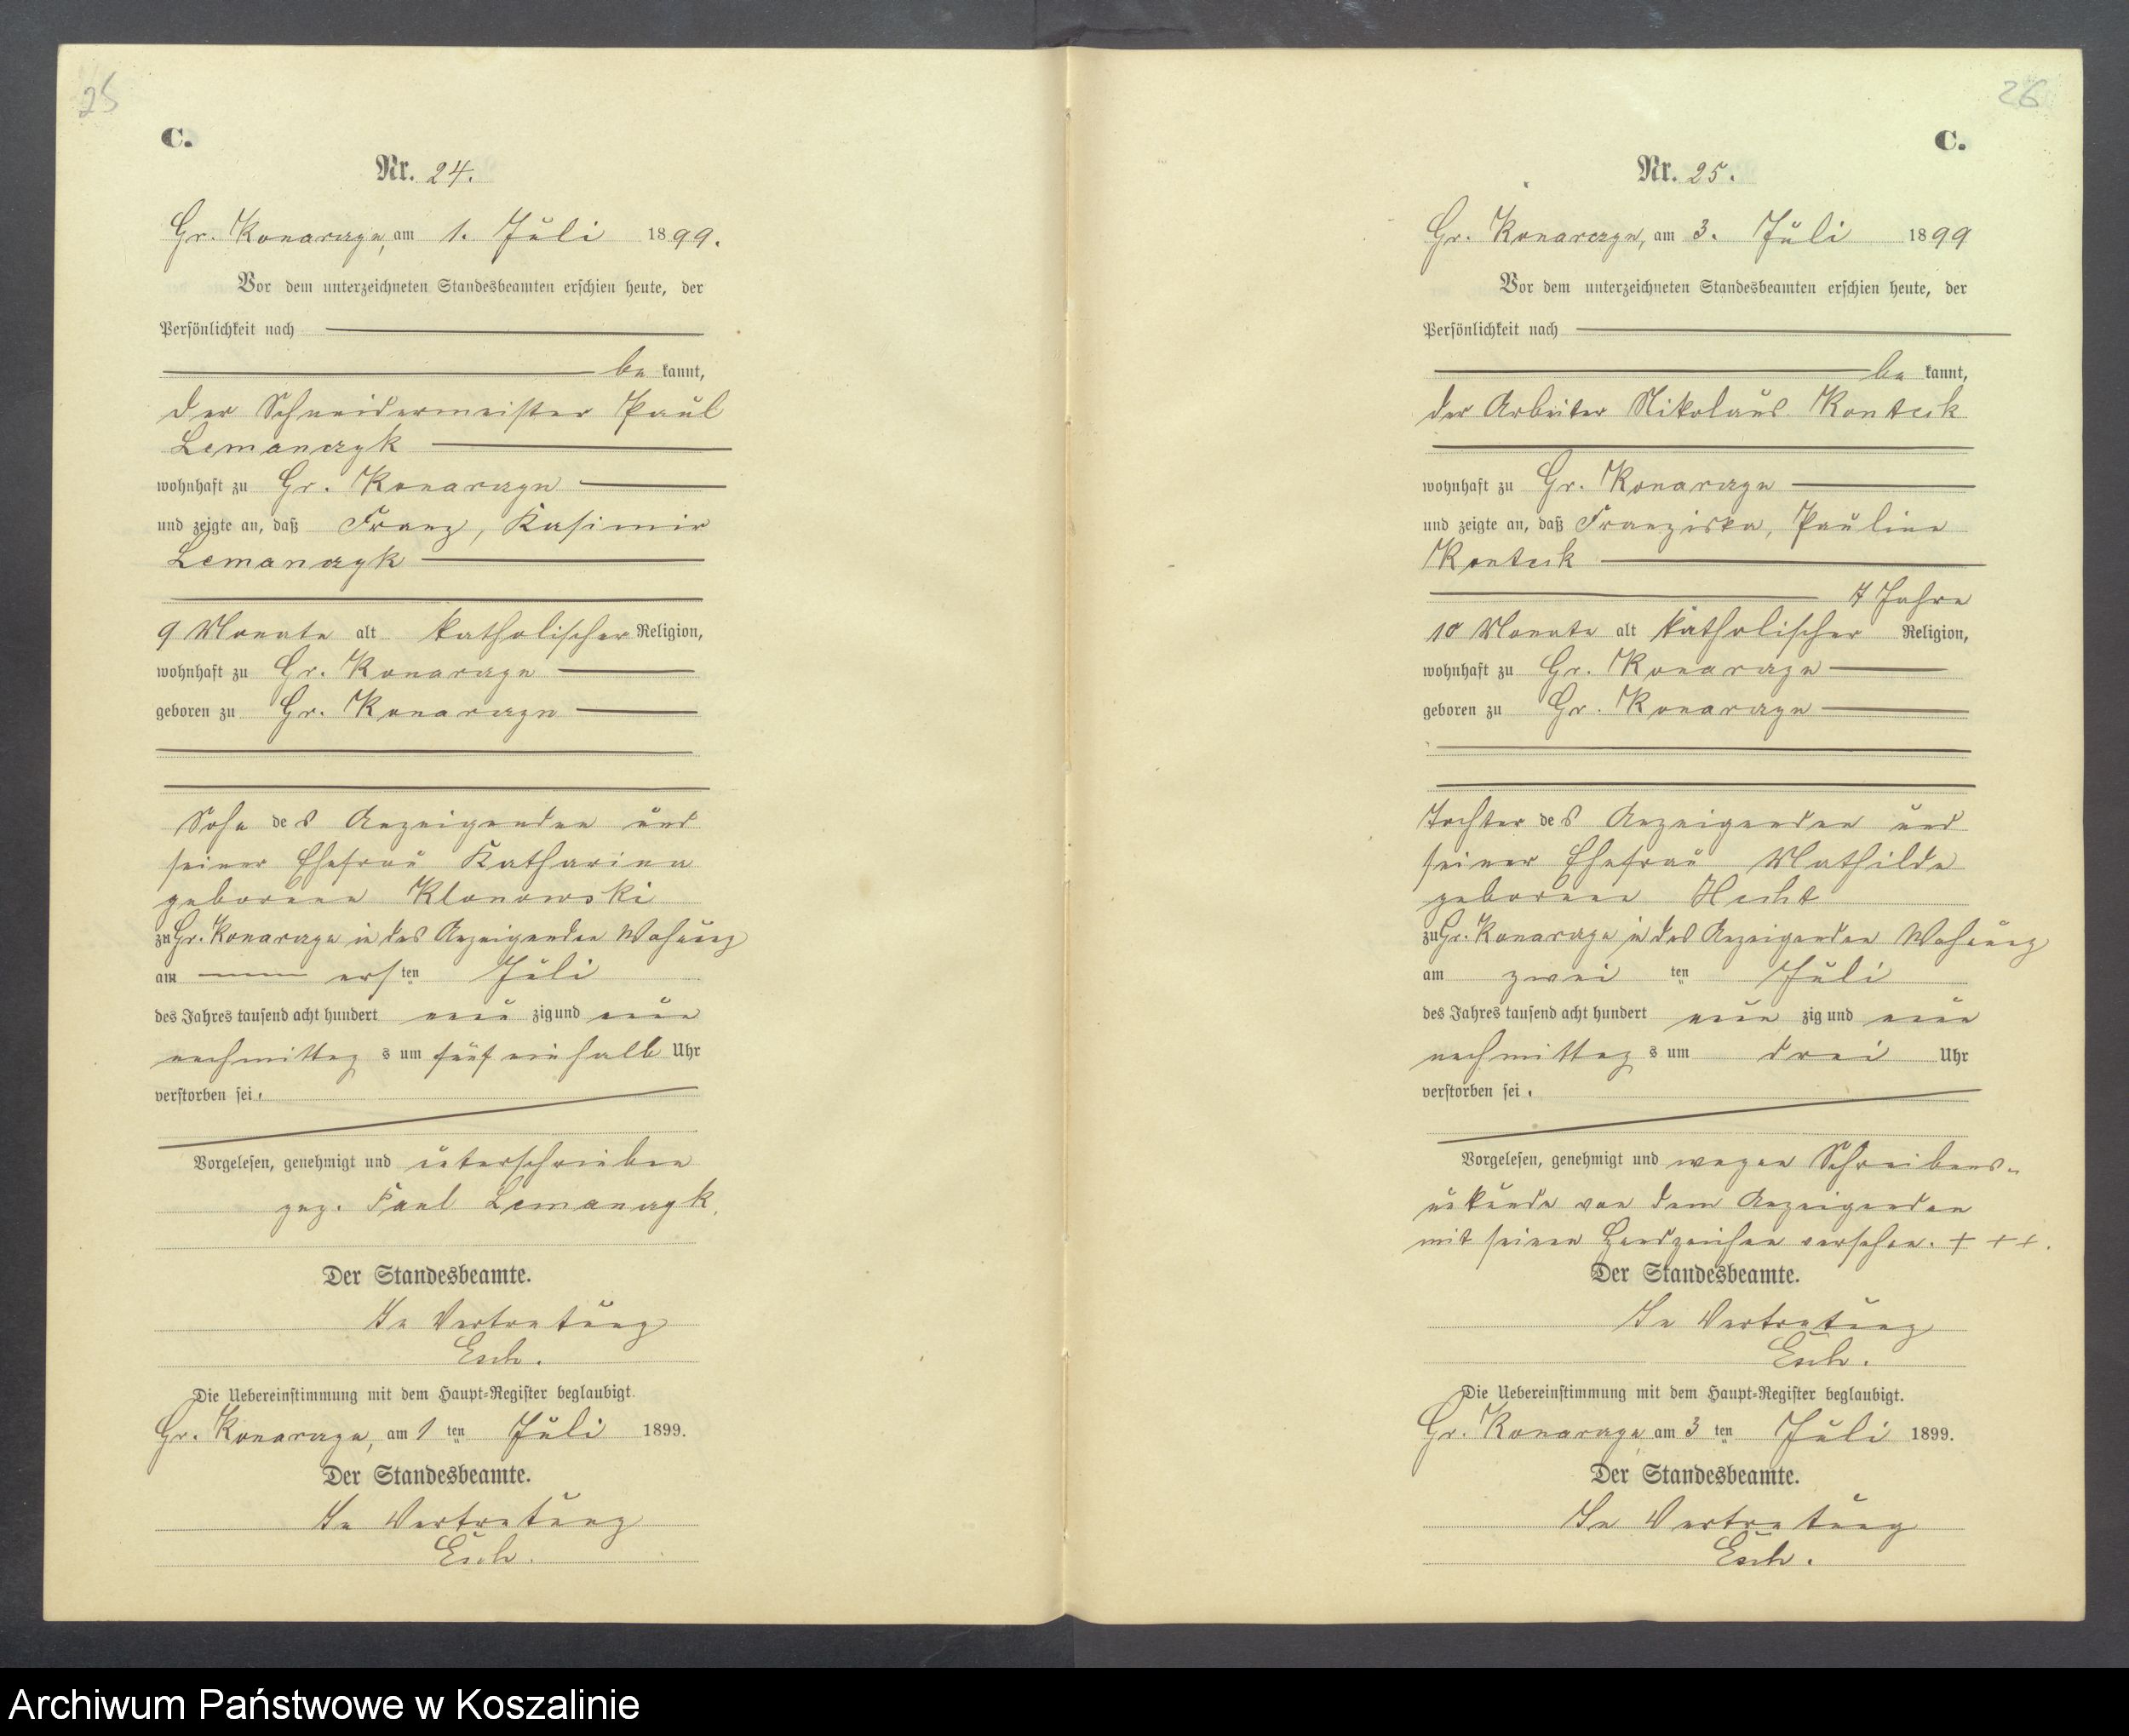 25
C.
Nr. 24.
Gr. Konarczyn, am 1. Juli 1899.
Vor dem unterzeichneten Standesbeamten erschien heute, der
Persönlichkeit nach
be kannt,
der Schneidermeister Paul
Lemanczyk
wohnhaft zu Gr. Konarczyn
und zeigte an, daß Franz, Kasimir
Lemanczyk
9 Monate alt katholischer Religion,
wohnhaft zu Gr. Konarczyn
geboren zu Gr. Konarczyn
Sohn des Anzeigenden und
seiner Ehefrau Katharina
geborenen Klonowski
zu Gr. Konarczyn in des Anzeigenden Wohnung
am ersten Juli
des Jahres tausend acht hundert neunzig und neun
nachmittags um fünf einhalb Uhr
verstorben sei.
Vorgelesen, genehmigt und unterschrieben
gez. Paul Lemanczyk.
Der Standesbeamte.
In Vertretung
Esch.
Die Uebereinstimmung mit dem Haupt-Register beglaubigt.
Gr. Konarczyn, am 1ten Juli 1899.
Der Standesbeamte.
In Vertretung
Esch.
26
C.
Nr. 25.
Gr. Konarczyn, am 3. Juli 1899
Vor dem unterzeichneten Standesbeamten erschien heute, der
Persönlichkeit nach
be kannt,
der Arbeiter Nikolaus Konteck
wohnhaft zu Gr. Konarczyn
und zeigte an, daß Franziska, Pauline
Konteck
7 Jahre
10 Monate alt katholischer Religion,
wohnhaft zu Gr. Konarczyn
geboren zu Gr. Konarczyn
Tochter des Anzeigenden und
seiner Ehefrau Mathilde
geborenen Hecht
zu Gr. Konarczyn in des Anzeigenden Wohnung
am zweiten Juli
des Jahres tausend acht hundert neunzig und neun
nachmittags um drei Uhr
verstorben sei.
Vorgelesen, genehmigt und wegen Schreibens-
unkunde von dem Anzeigenden
mit seinen Handzeichen versehen. + + +.
Der Standesbeamte.
In Vertretung
Esch.
Die Uebereinstimmung mit dem Haupt-Register beglaubigt.
Gr. Konarczyn am 3ten Juli 1899.
Der Standesbeamte.
In Vertretung
Esch.
Archiwum Państwowe w Koszalinie